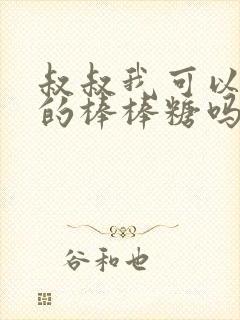 叔叔我可以
的棒棒糖吗
谷和也